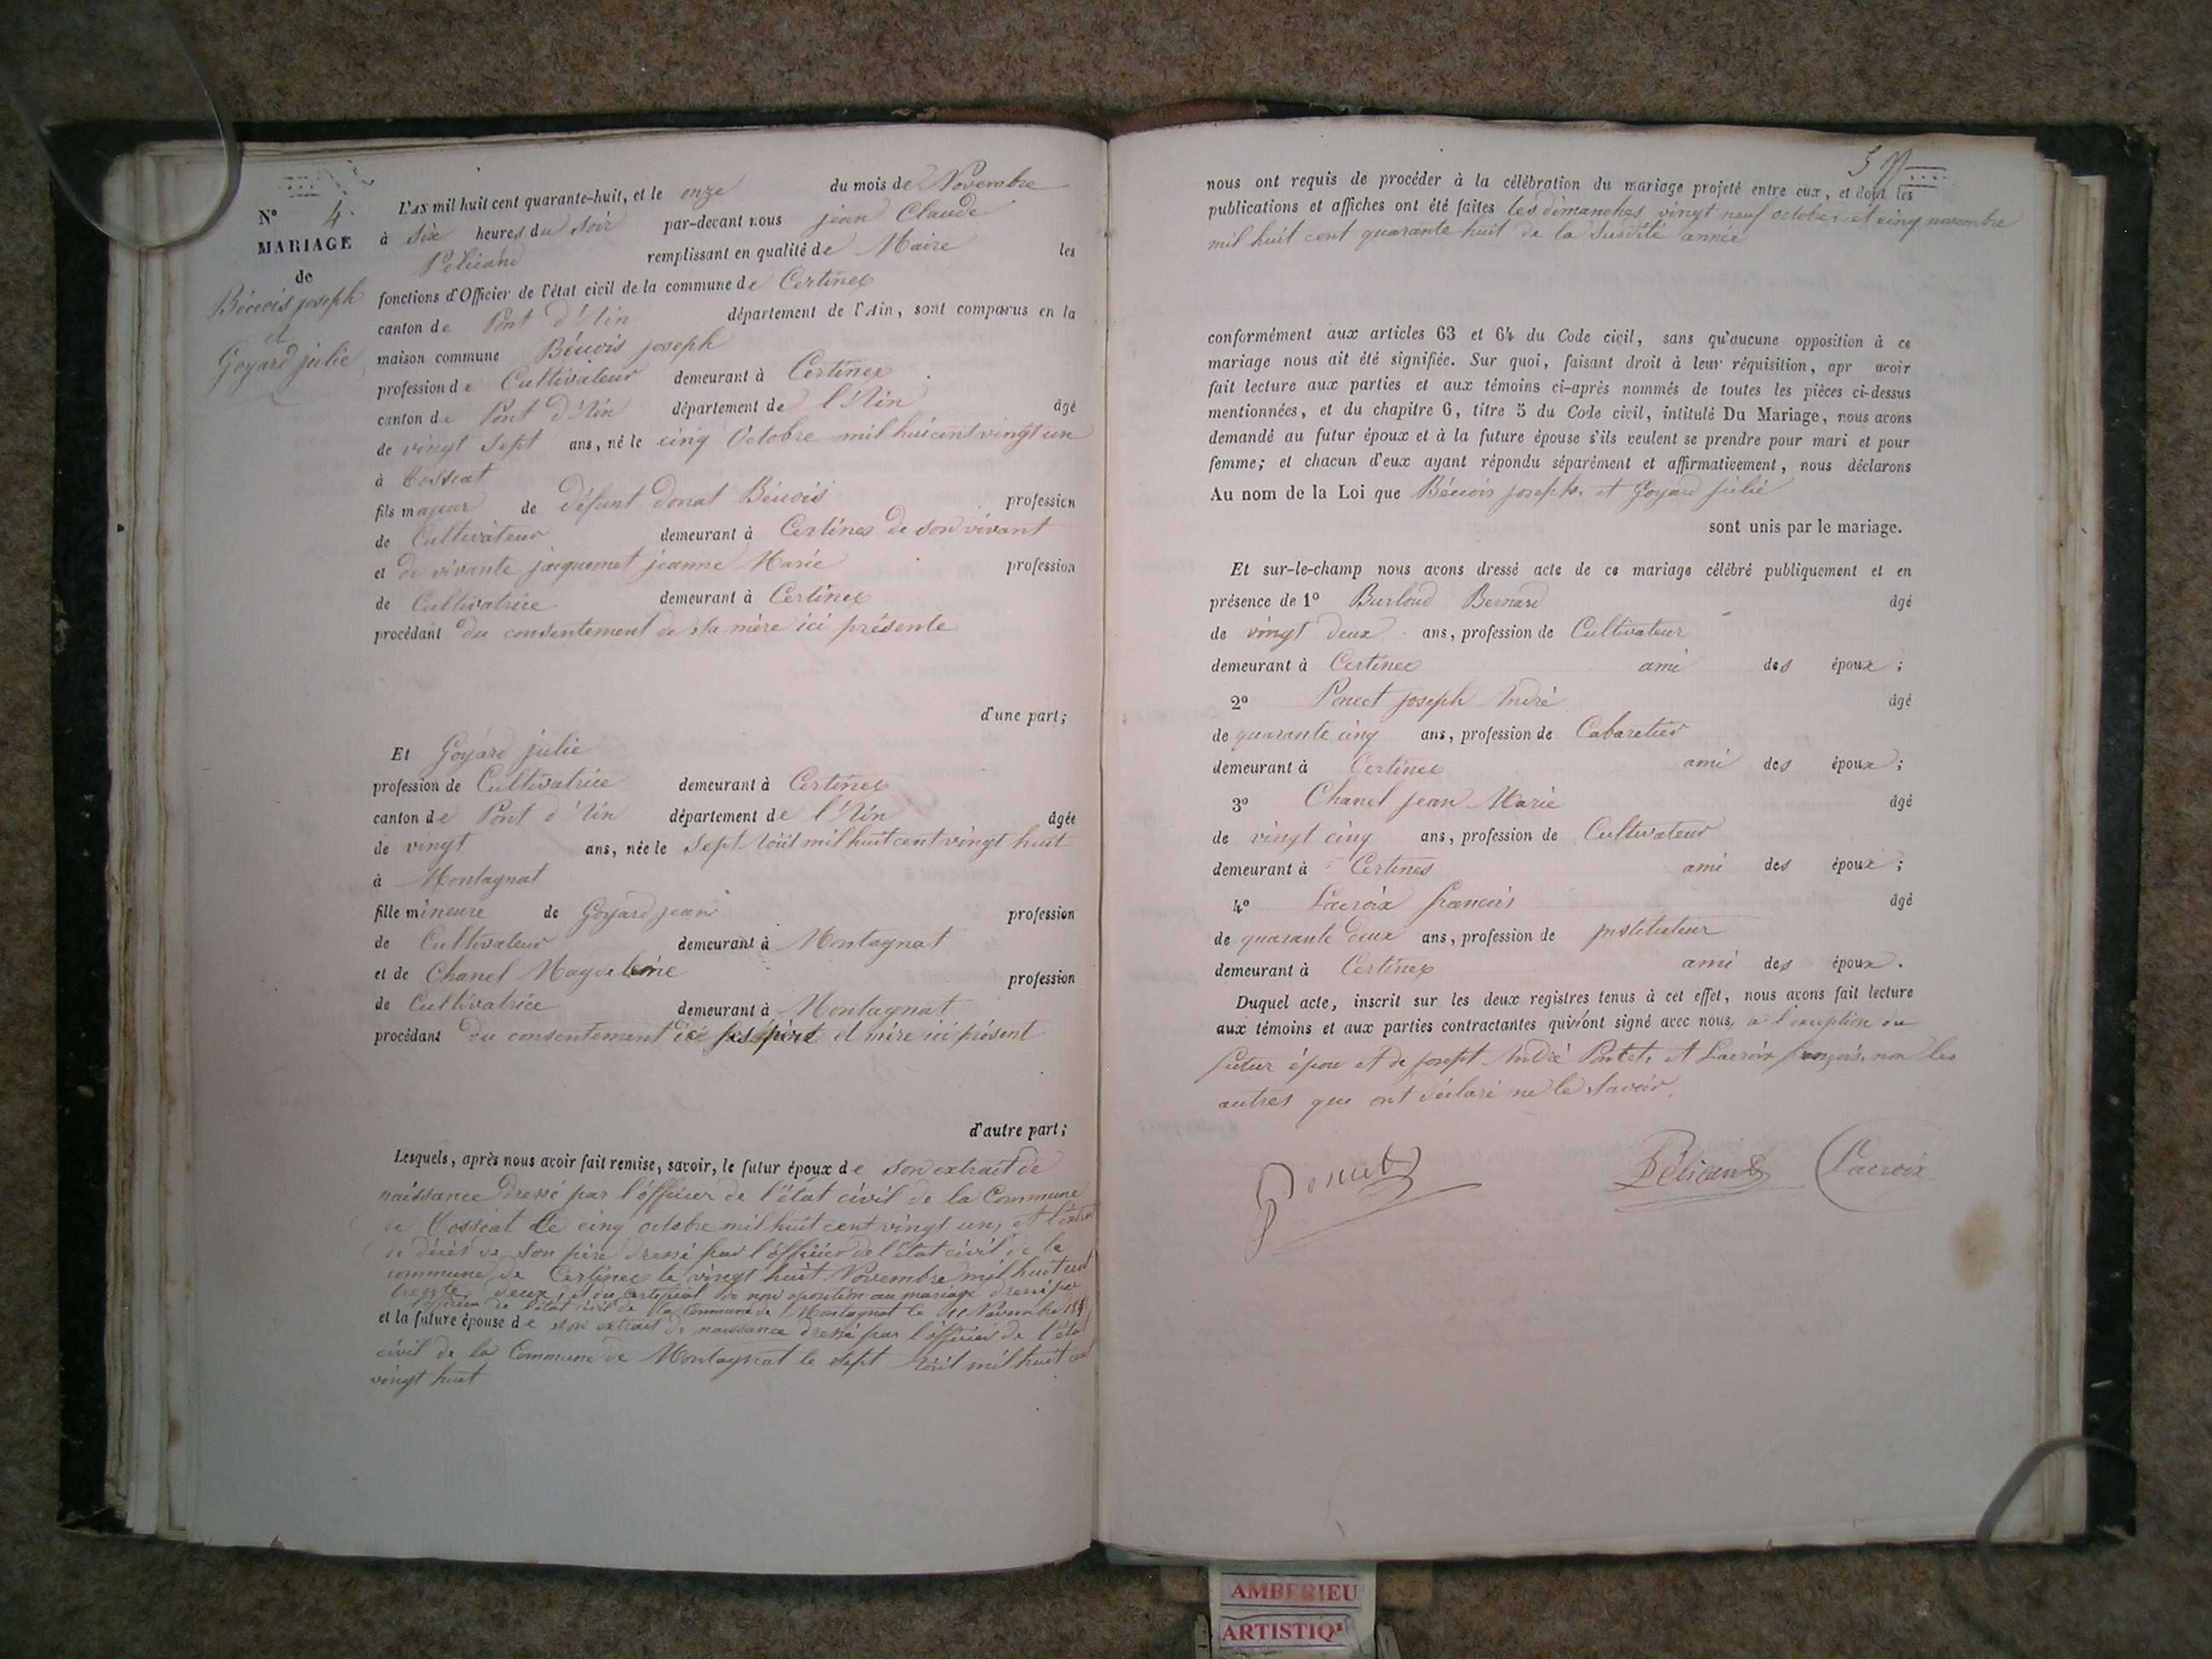 N° 4.
MARIAGE
de
Bécuois joseph
et
Goyard julie
L'AN mil huit cent quarante-huit, et le onze du mois de Novembre
à six heures du soir par-devant nous jean Claude
Pélicand remplissant en qualité de Maire les
fonctions d'Officier de l'état civil de la commune de Certines
canton de Pont d'Ain département de l'Ain, sont comparus en la
maison commune joseph
profession de Cultivateur demeurant à Certines
canton de Pont d'Ain département de l'Ain âgé
de vingt sept ans, né le cinq Octobre mil huit cent vingt un
à Tossiat
fils majeur de défunt donat profession
de Cultivateur demeurant à Certines de son vivant
et de vivante jacquemet jeanne Marie profession
de Cultivatrice demeurant à Certines
procédant du consentement de sa mère ici présente
d'une part;
Et Goyard julie
profession de Cultivatrice demeurant à Certines
canton de Pont d'Ain département de l'Ain âgée
de vingt ans, née le sept Août mil huit cent vingt huit
à Montagnat
fille mineure de Goyard jean profession
de Cultivateur demeurant à Montagnat
et de Chanel Magdeleine profession
de Cultivatrice demeurant à Montagnat
procédant du consentement de ses père et mère ici présent
d'autre part;
Lesquels, après nous avoir fait remise, savoir, le futur époux de son extrait de
naissance dressé par l'officier de l'état civil de la Commune
de Tossiat le cinq octobre mil huit cent vingt un, et l'extrait
de décès de son père dressé par l'officier de l'état civil de la
commune de Certines le vingt huit Novembre mil huit cent
trente deux, et du certificat de non oposition au mariage dressé par
l'officier de l'état civil de la Commune de Montagnat le 11 Novembre
et la future épouse de son extrait de naissance dressé par l'officier de l'état
civil de la Commune de Montagnat le sept Août mil huit cent
vingt huit
nous ont requis de procéder à la célébration du mariage projeté entre eux, et dont les
publications et affiches ont été faites les dimanches vingt neuf octobre et cinq novembre
mil huit cent quarante huit de la susdite année
conformément aux articles 63 et 64 du Code civil, sans qu'aucune opposition à ce
mariage nous ait été signifiée. Sur quoi, faisant droit à leur réquisition, apr avoir
fait lecture aux parties et aux témoins ci-après nommés de toutes les pièces ci-dessus
mentionnées, et du chapitre 6, titre 5 du Code civil, intitulé Du Mariage, nous avons
demandé au futur époux et à la future épouse s'ils veulent se prendre pour mari et pour
femme; et chacun d'eux ayant répondu séparément et affirmativement, nous déclarons
Au nom de la Loi que joseph et Goyard julie
sont unis par le mariage.
Et sur-le-champ nous avons dressé acte de ce mariage célébré publiquement et en
présence de 1° Burloud Bernard âgé
de vingt deux ans, profession de Cultivateur
demeurant à Certines ami des époux;
2° Poncet joseph André âgé
de quarante cinq ans, profession de Cabaretier
demeurant à Certines ami des époux;
3° Chanel jean Marie âgé
de vingt cinq ans, profession de Cultivateur
demeurant à Certines ami des époux;
4° Lacroix francois âgé
de quarante deux ans, profession de jnstituteur
demeurant à Certines ami des époux.
Duquel acte, inscrit sur les deux registres tenus à cet effet, nous avons fait lecture
aux témoins et aux parties contractantes qui ont signé avec nous, a l'exception du
futur épou et de josept André Poncet, et Lacroix françois, non les
autres que ont déclaré ne le savoir.
Poncet Pélicand Lacroix
AMBERIEU
ARTISTIQU